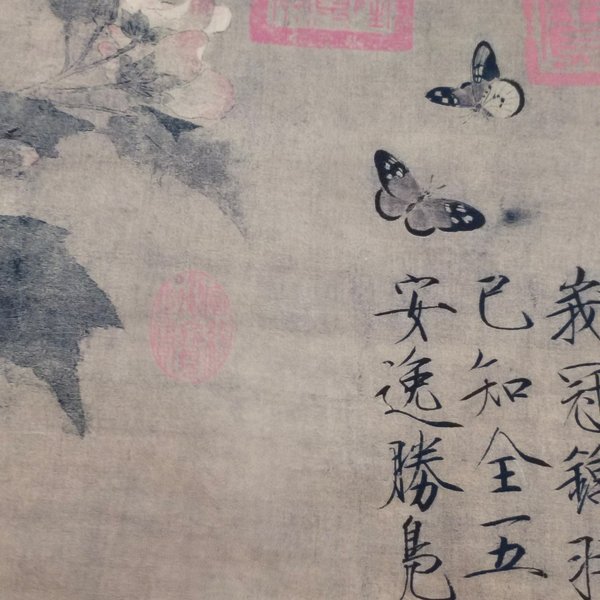 峩冠錦羽
已知全五
安逸勝鳧